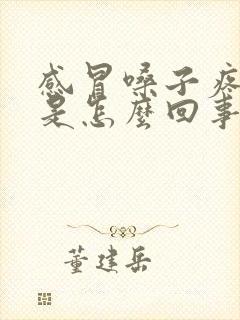 感冒嗓子疼
是怎麼回事
董建岳